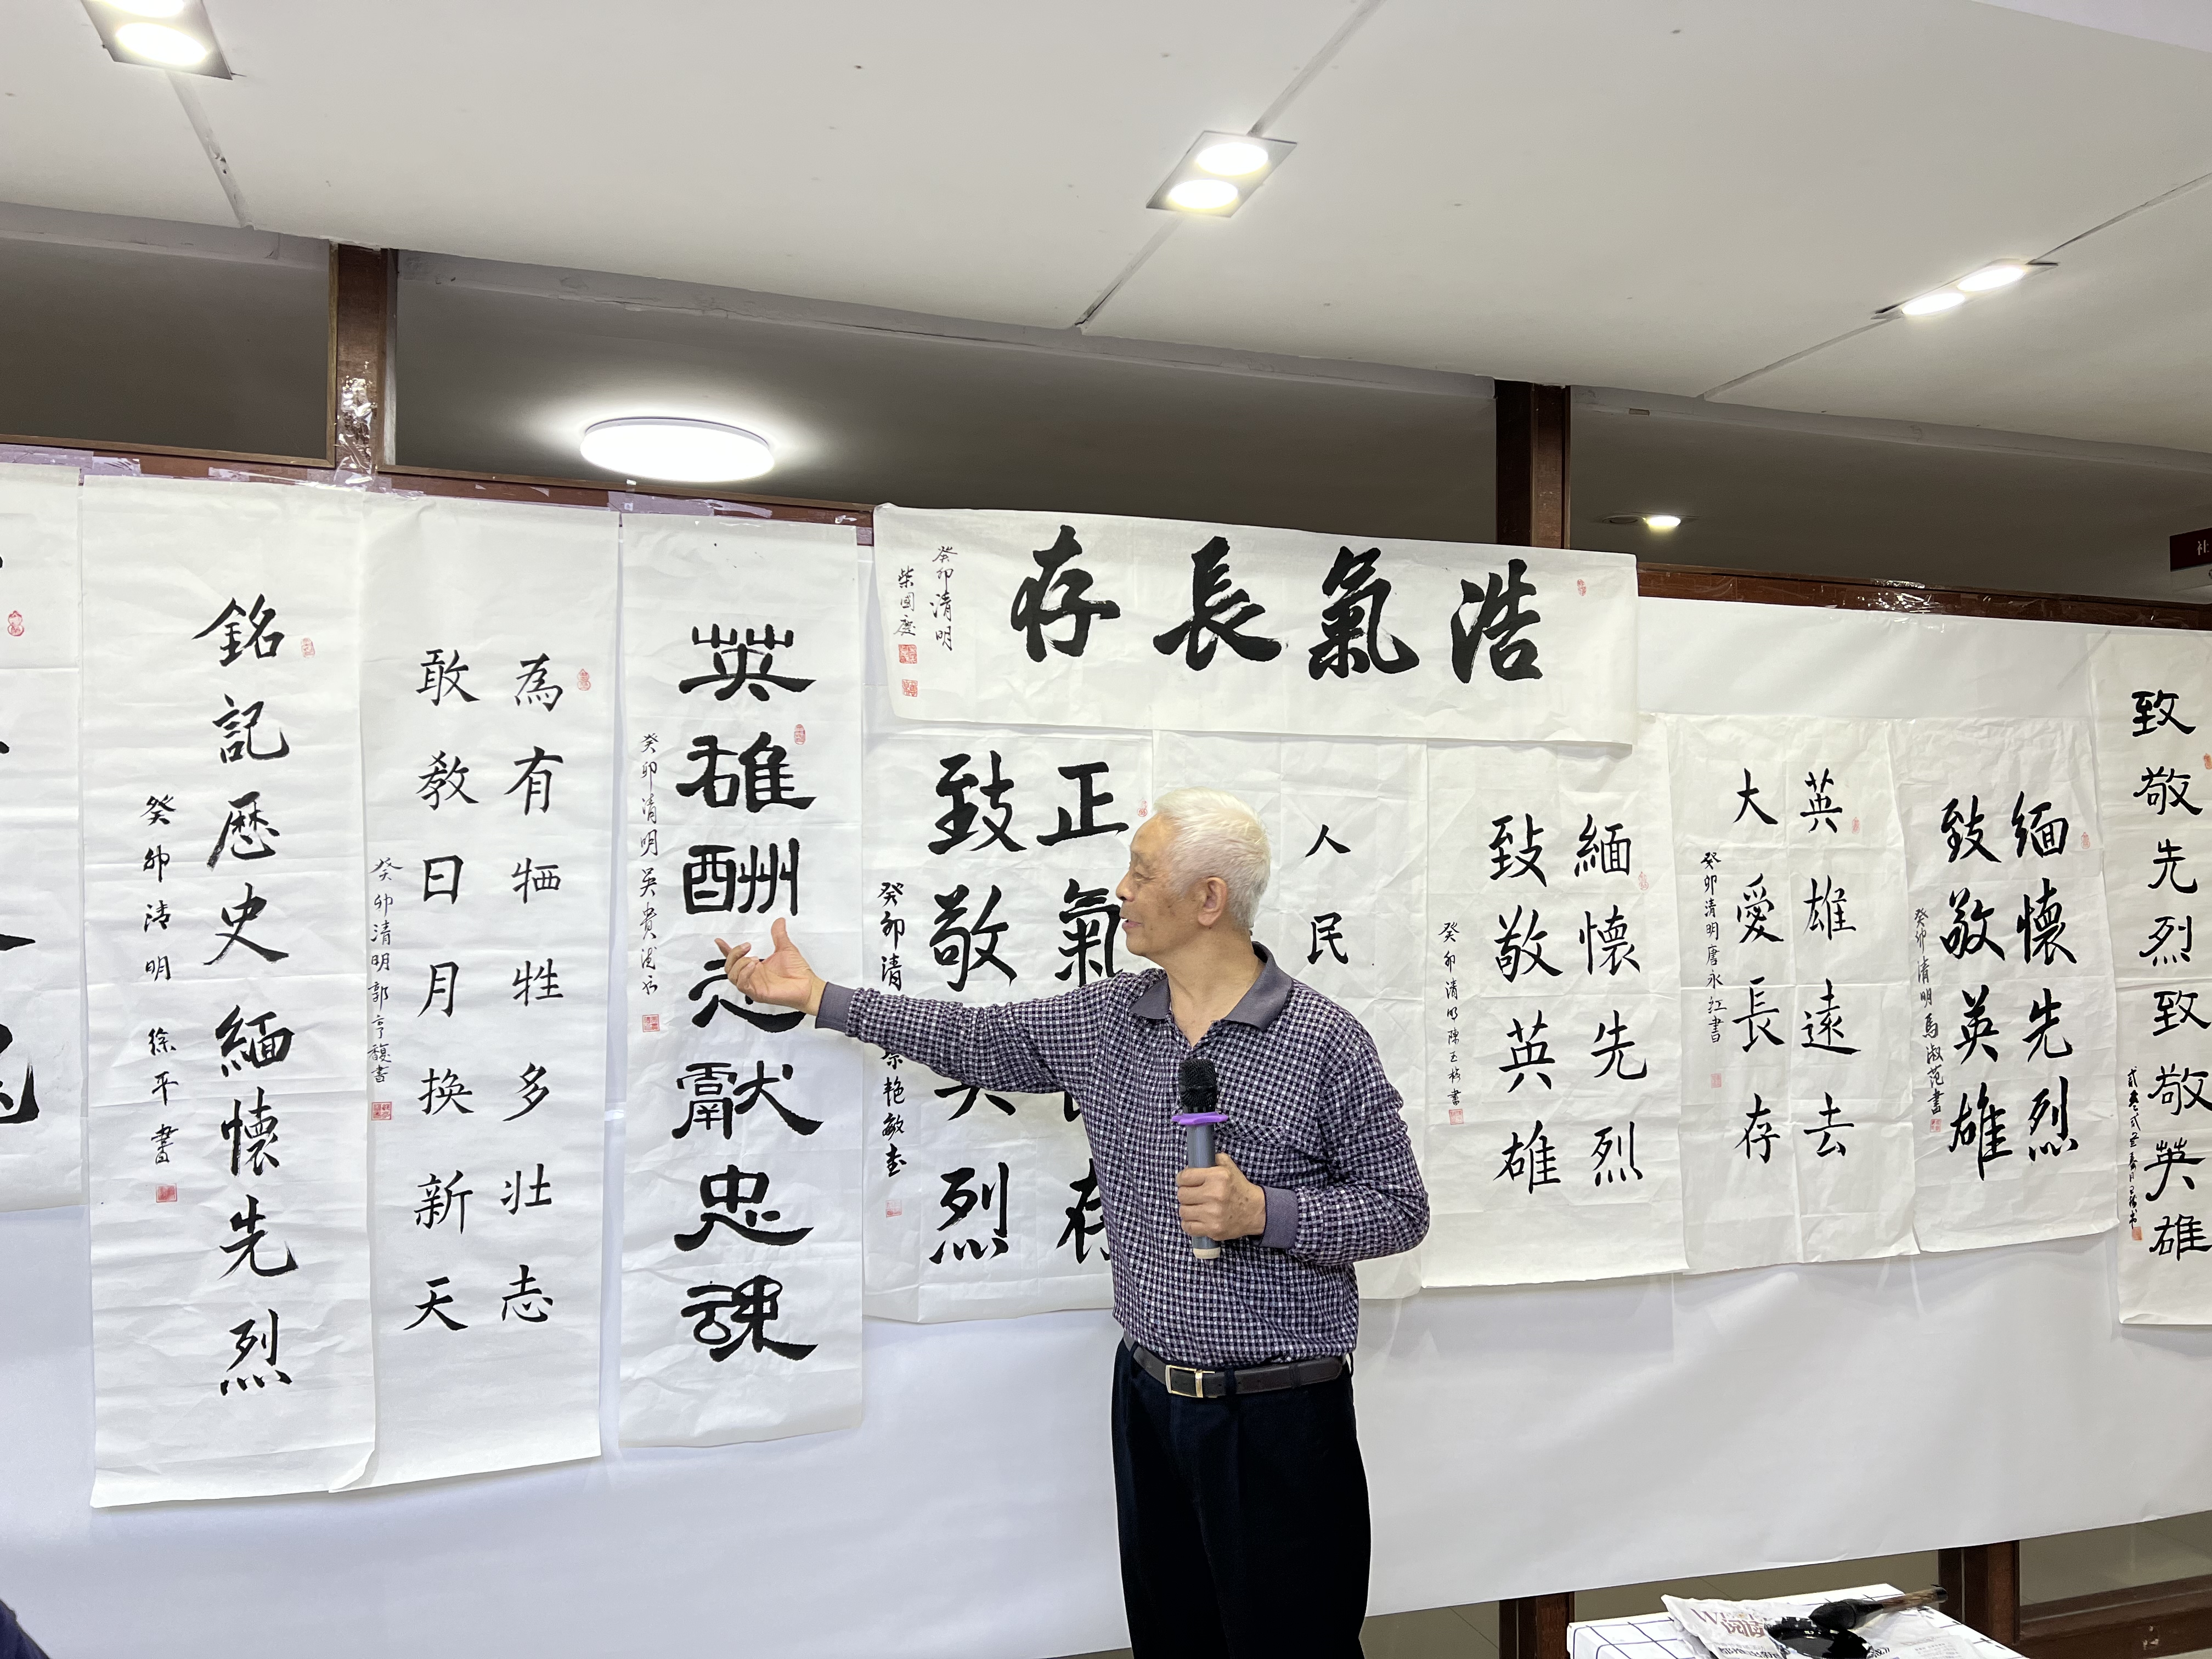 銘記歷史緬懷先烈
癸卯清明 徐平書
為有牺牲多壮志
敢教日月换新天
癸卯清明郭亨馥書
英雄酬志獻忠魂
癸卯清明吴贵
浩氣長存
癸卯清明
柴國慶
正氣存
致敬英烈
癸卯清艳敏書
人民
緬懷先烈
致敬英雄
癸卯清明陳玉枝書
英雄遠去
大愛長存
癸卯清明唐永红書
緬懷先烈
致敬英雄
癸卯清明馬淑范書
致敬先烈致敬英雄
社
阅读